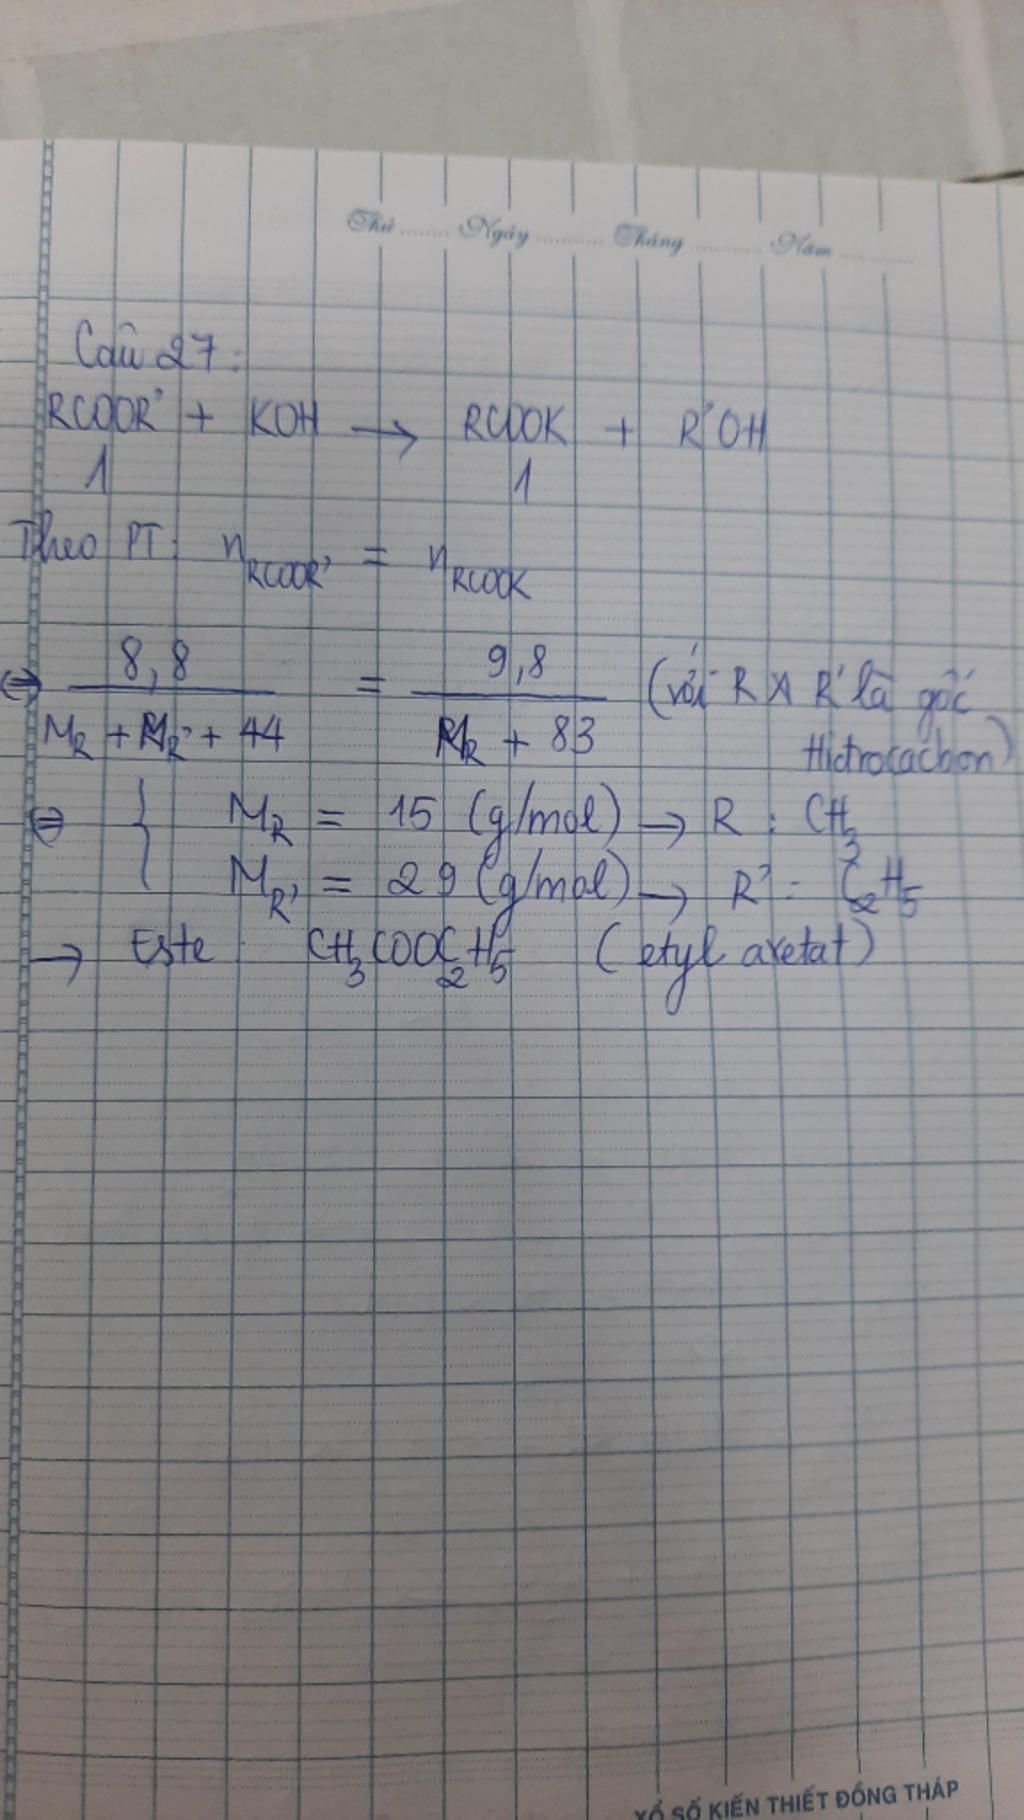 Thứ ........ Ngày ........... Tháng ........... Năm ............
Câu 27:
RCOOR' + KOH → RCOOK + R'OH
1 1
Theo PT: nRCOOR' = nRCOOK
⇔ 8,8 / (MR + MR' + 44) = 9,8 / (MR + 83) (với R và R' là gốc
Hidrocacbon)
⇔ { MR = 15 (g/mol) → R : CH3
MR' = 29 (g/mol) → R' : C2H5
→ Este : CH3COOC2H5 (etyl axetat)
XỔ SỐ KIẾN THIẾT ĐỒNG THÁP